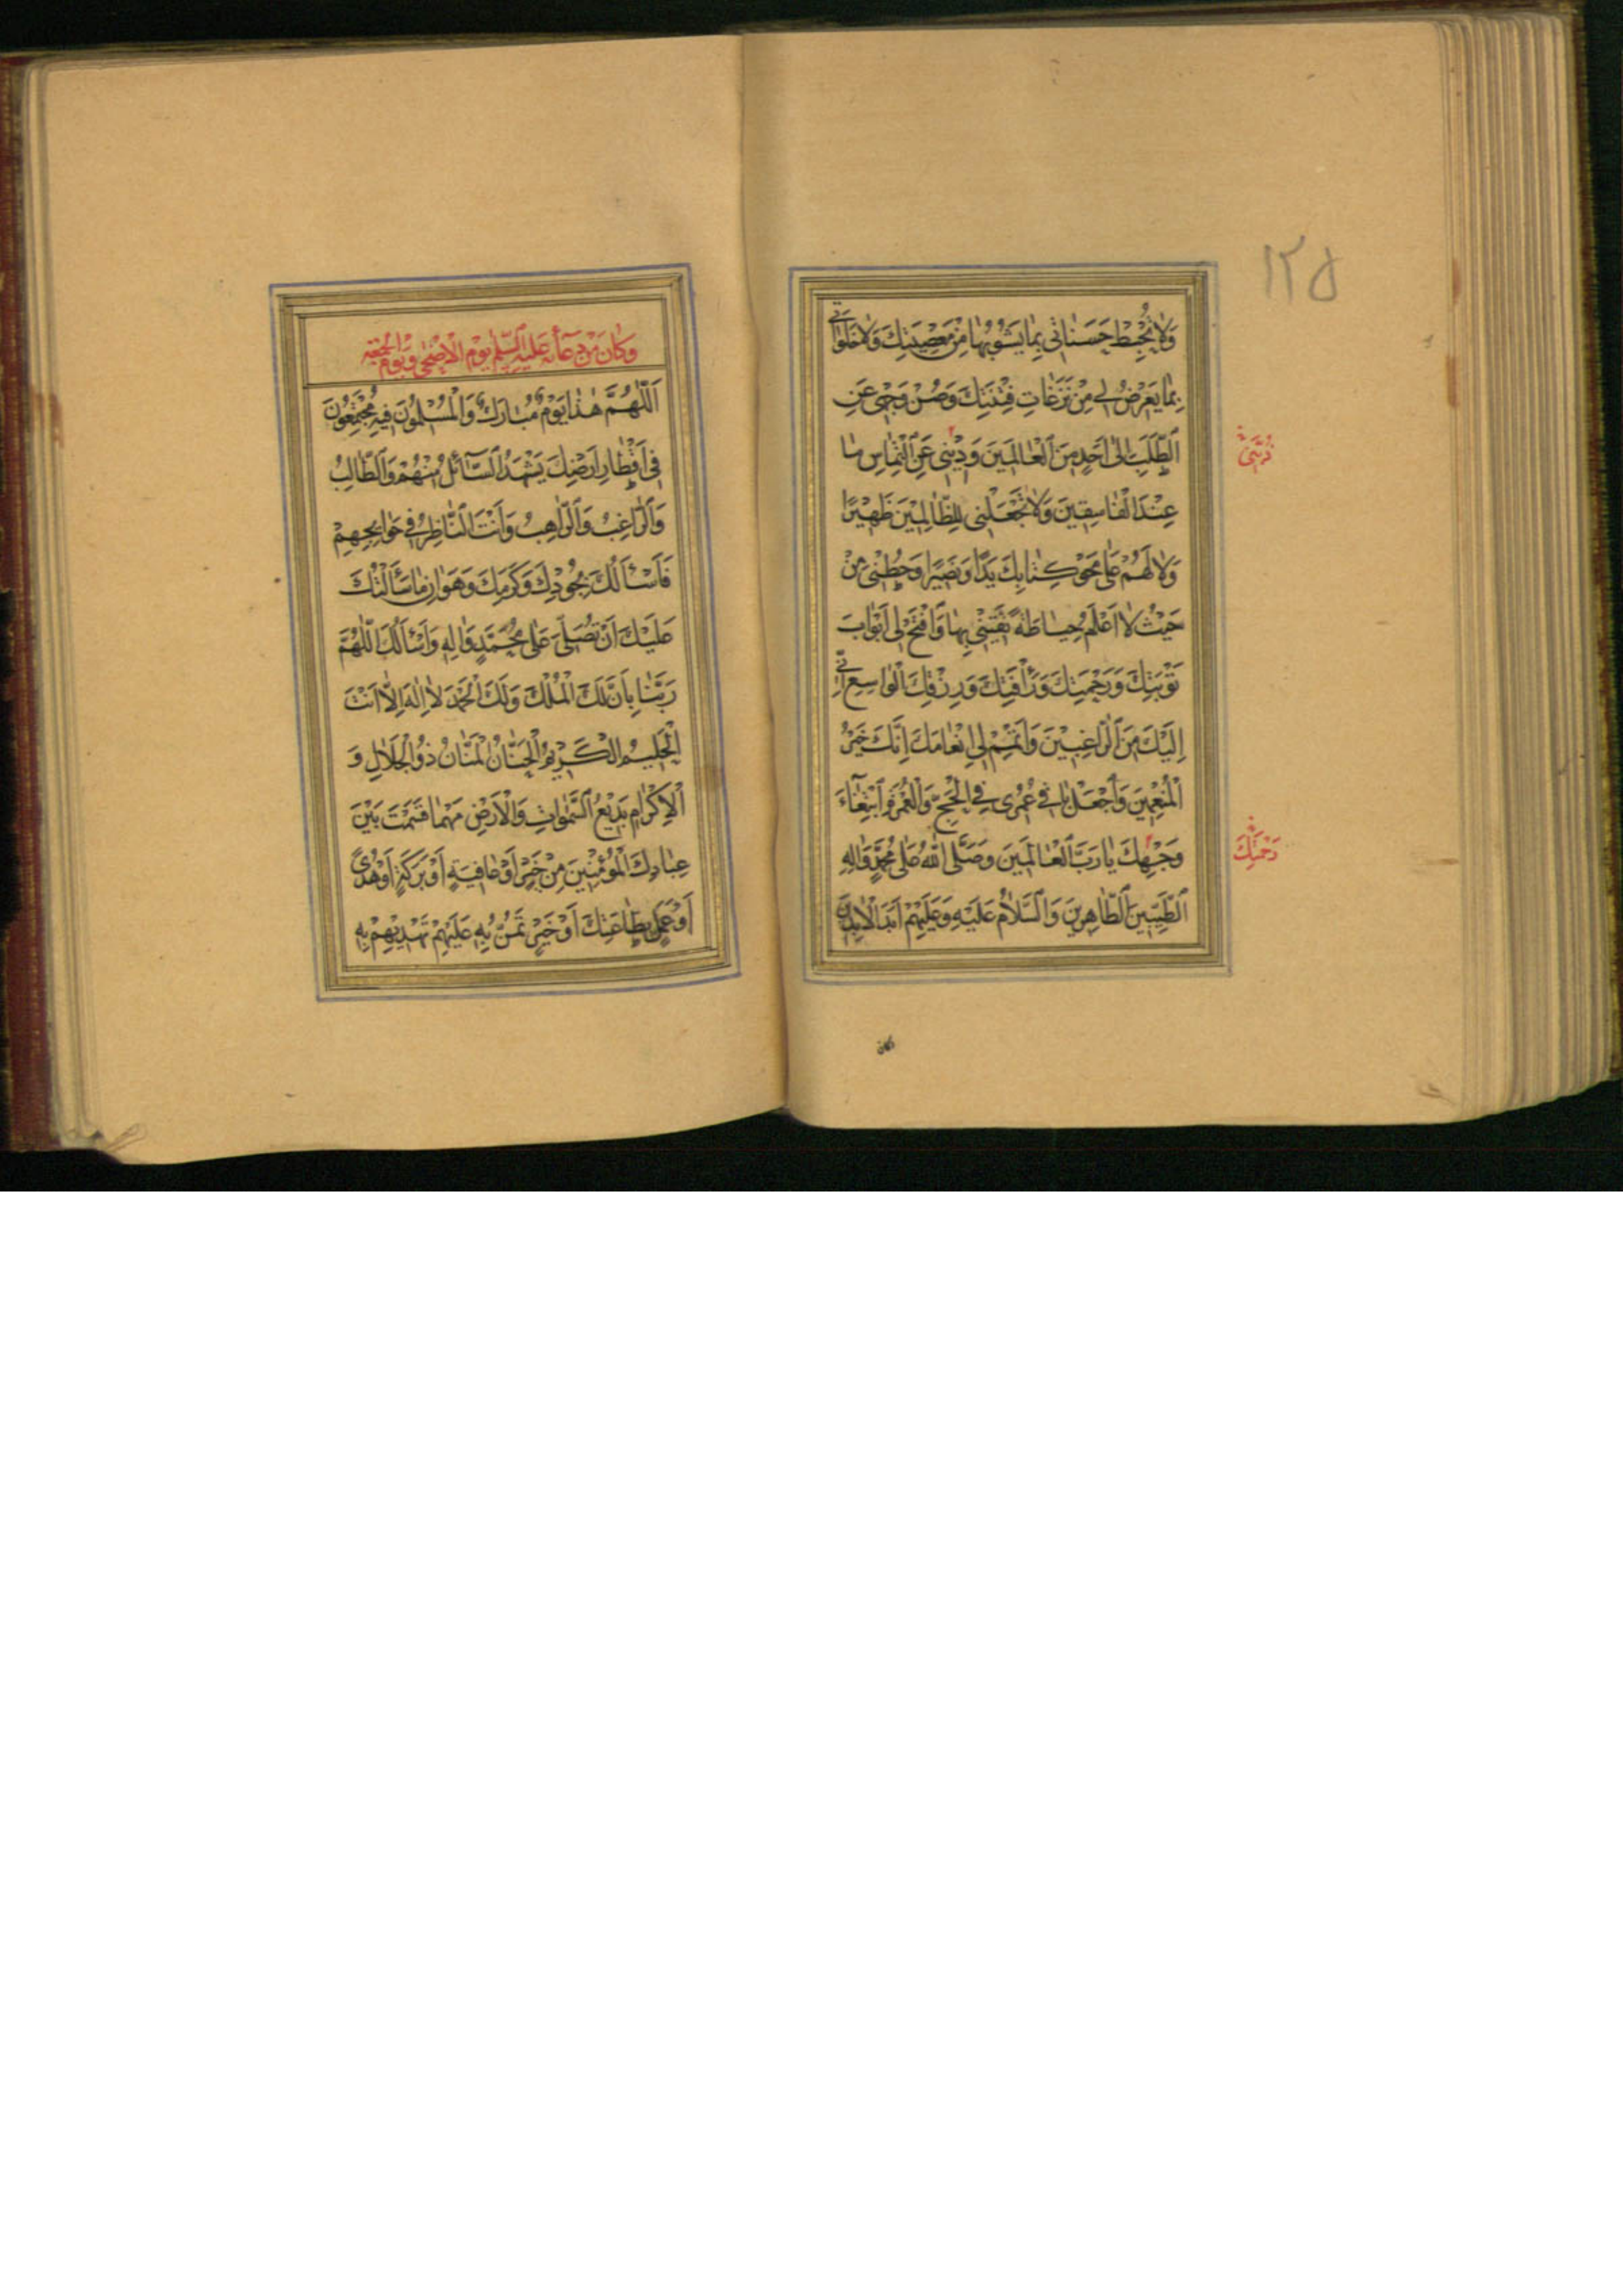 ١٢٥
وَلَا تُحْبِطْ حَسَنَاتِي بِمَا يَشُوبُهَا مِنْ مَعْصِيَتِكَ وَلَا خَلَوَاتِي
بِمَا يَعْرِضُ لِي مِنْ نَزَغَاتِ فِتْنَتِكَ وَصُنْ وَجْهِي عَنِ
الطَّلَبِ اِلىٰ اَحَدٍ مِنَ الْعَالَمِينَ وَذُبَّنِي عَنِ الْتِمَاسِ مَا
عِنْدَ الْفَاسِقِينَ وَلَا تَجْعَلْنِي لِلظَّالِمِينَ ظَهِيرًا
وَلَا لَهُمْ عَلىٰ مَحْوِ كِتَابِكَ يَدًا وَنَصِيرًا وَحُطْنِي مِنْ
حَيْثُ لَا اَعْلَمُ حِيَاطَةً تَقِيَنِي بِهَا وَافْتَحْ لِي اَبْوَابَ
تَوْبَتِكَ وَرَحْمَتِكَ وَرَأْفَتِكَ وَرِزْقِكَ الْوَاسِعِ اِنِّي
اِلَيْكَ مِنَ الرَّاغِبِينَ وَاَتْمِمْ لِي اِنْعَامَكَ اِنَّكَ خَيْرُ
الْمُنْعِمِينَ وَاجْعَلْ بَاقِيَ عُمْرِي فِي الْحَجِّ وَالْعُمْرَةِ ابْتِغَاءَ
وَجْهِكَ يَا رَبَّ الْعَالَمِينَ وَصَلَّى اللّٰهُ عَلىٰ مُحَمَّدٍ وَاٰلِهِ
الطَّيِّبِينَ الطَّاهِرِينَ وَالسَّلَامُ عَلَيْهِ وَعَلَيْهِمْ اَبَدَ الْاٰبِدِينَ
رَحْمَتِكَ
وَكَانَ مِنْ دُعَائِهِ عَلَيْهِ السَّلَمُ يَوْمَ الْاَضْحىٰ وَيَوْمَ الْجُمُعَةِ
اَللّٰهُمَّ هٰذَا يَوْمٌ مُبَارَكٌ وَالْمُسْلِمُونَ فِيهِ مُجْتَمِعُونَ
فِي اَقْطَارِ اَرْضِكَ يَشْهَدُ السَّائِلُ مِنْهُمْ وَالطَّالِبُ
وَالرَّاغِبُ وَالرَّاهِبُ وَاَنْتَ النَّاظِرُ فِي حَوَائِجِهِمْ
فَاَسْئَلُكَ بِجُودِكَ وَكَرَمِكَ وَهَوَانِ مَا سَأَلْتُكَ
عَلَيْكَ اَنْ تُصَلِّيَ عَلىٰ مُحَمَّدٍ وَاٰلِهِ وَاَسْئَلُكَ اللّٰهُمَّ
رَبَّنَا بِاَنَّ لَكَ الْمُلْكَ وَلَكَ الْحَمْدَ لَا اِلٰهَ اِلَّا اَنْتَ
الْحَلِيمُ الْكَرِيمُ الْحَنَّانُ الْمَنَّانُ ذُو الْجَلَالِ وَ
الْاِكْرَامِ بَدِيعُ السَّمٰوَاتِ وَالْاَرْضِ مَهْمَا قَسَمْتَ بَيْنَ
عِبَادِكَ الْمُؤْمِنِينَ مِنْ خَيْرٍ اَوْ عَافِيَةٍ اَوْ بَرَكَةٍ اَوْ هُدًى
اَوْ عَمَلٍ بِطَاعَتِكَ اَوْ خَيْرٍ تَمُنُّ بِهِ عَلَيْهِمْ تَهْدِيهِمْ بِهِ